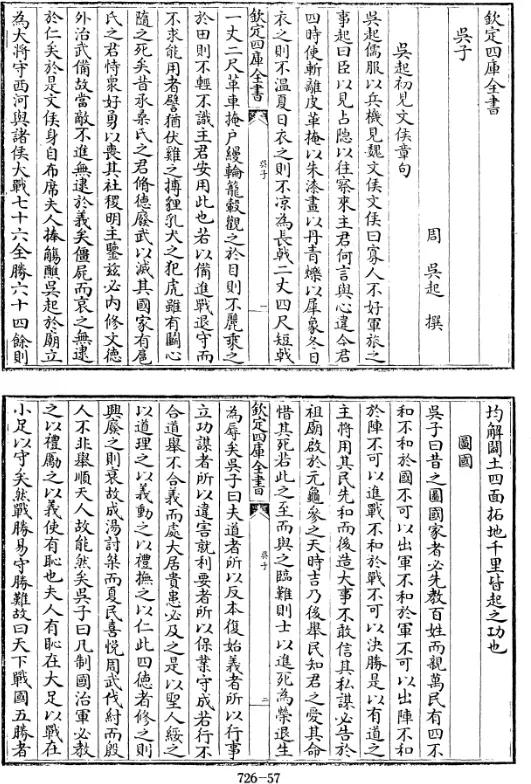 欽定四庫全書
吳子
周 吳起 撰
吳起初見文侯章句
吳起儒服以兵機見魏文侯文侯曰寡人不好軍旅之
事起曰臣以見占隠以往察來主君何言與心違今君
四時使斬離皮革掩以朱漆畫以丹青爍以犀象冬日
衣之則不溫夏日衣之則不凉為長戟二丈四尺短戟
欽定四庫全書 吳子 一
一丈二尺革車掩户縵輪籠轂觀之於目則不麗乘之
於田則不輕不識主君安用此也若以備進戰退守而
不求能用者譬猶伏雞之搏狸乳犬之犯虎雖有鬭心
隨之死矣昔承桑氏之君脩德廢武以滅其國家有扈
氏之君恃衆好勇以喪其社稷明主鑒兹必内修文德
外治武備故當敵不進無逮於義矣僵屍而哀之無逮
於仁矣於是文侯身自布席夫人捧觴醮吳起於廟立
為大將守西河與諸侯大戰七十六全勝六十四餘則
均解闢土四面拓地千里皆起之功也
圖國
吳子曰昔之圖國家者必先教百姓而親萬民有四不
和不和於國不可以出軍不和於軍不可以出陣不和
於陣不可以進戰不和於戰不可以決勝是以有道之
主將用其民先和而後造大事不敢信其私謀必告於
祖廟啟於元龜參之天時吉乃後舉民知君之愛其命
惜其死若此之至而與之臨難則士以進死為榮退生
欽定四庫全書 吳子 二
為辱矣吳子曰夫道者所以反本復始義者所以行事
立功謀者所以違害就利要者所以保業守成若行不
合道舉不合義而處大居貴患必及之是以聖人綏之
以道理之以義動之以禮撫之以仁此四德者修之則
興廢之則衰故成湯討桀而夏民喜悦周武伐紂而殷
人不非舉順天人故能然矣吳子曰凡制國治軍必教
之以禮勵之以義使有恥也夫人有恥在大足以戰在
小足以守矣然戰勝易守勝難故曰天下戰國五勝者
726-57